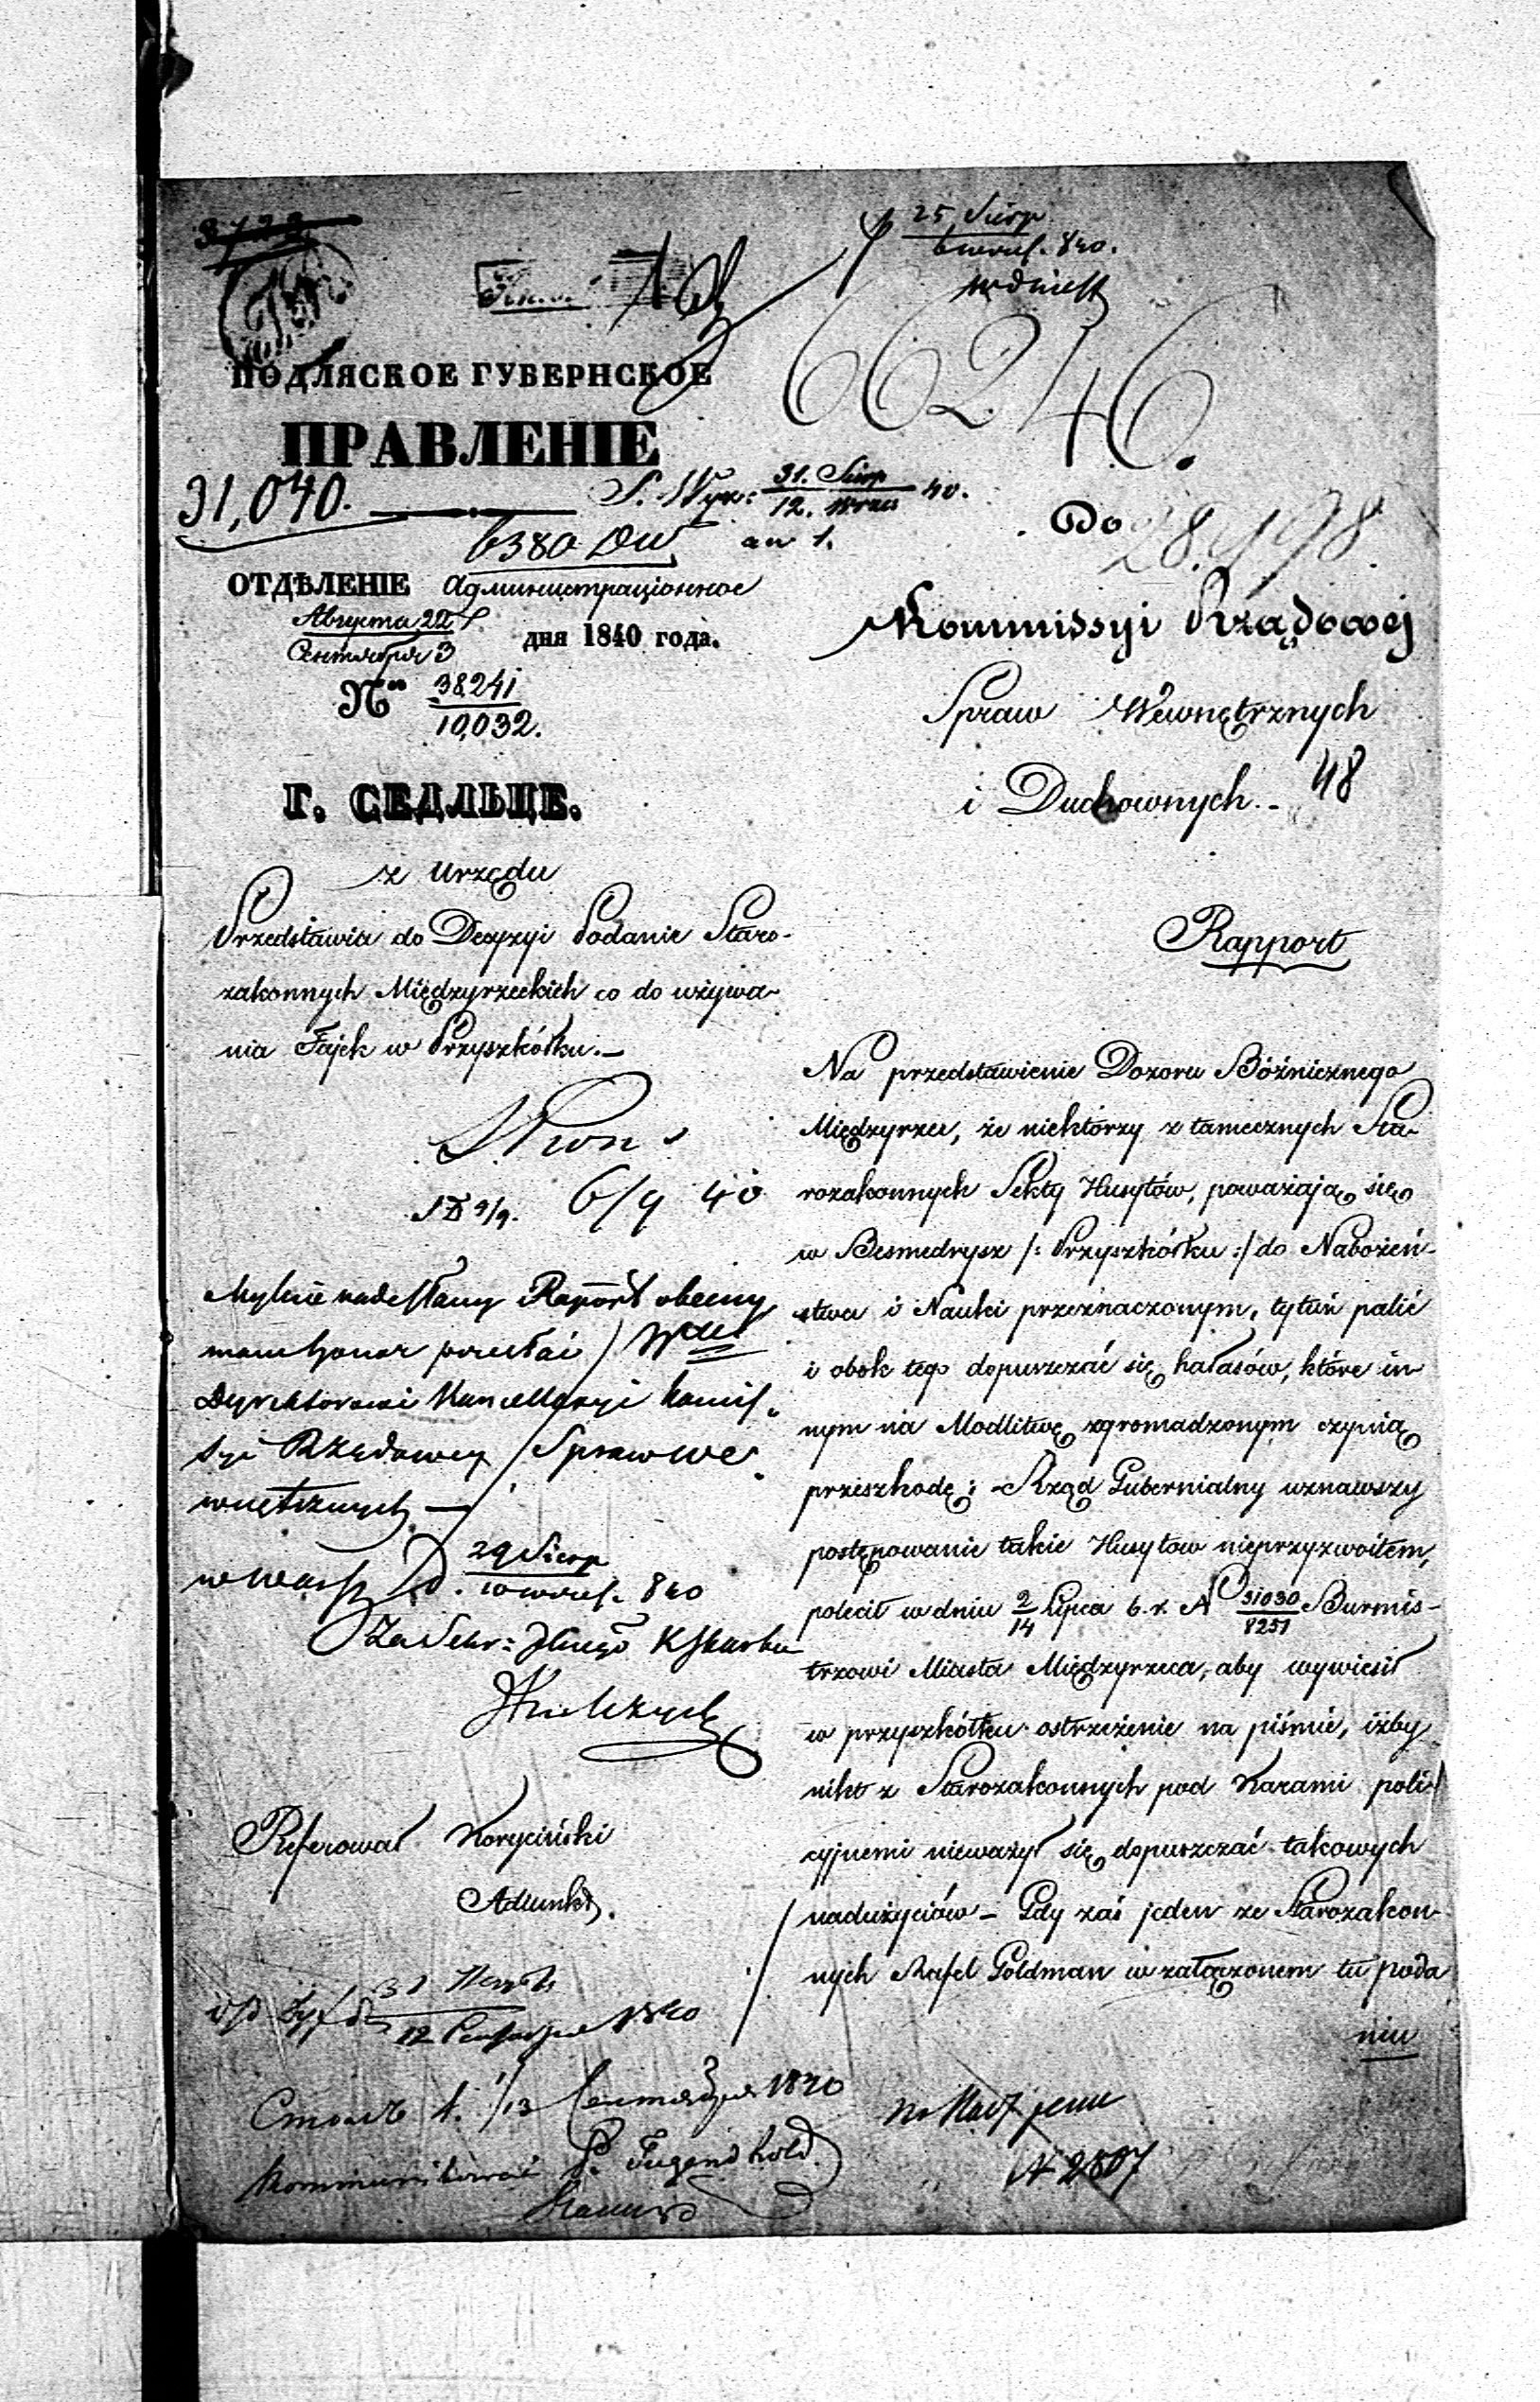 3722
25 Sierp
6 wrześ. 840.
66246.
ПОДЛЯСКОЕ ГУБЕРНСКОЕ
ПРАВЛЕНІЕ
31,040.
31. Sierp
12. Wrześ 40.
6380 DW
Do
28.498.
ОТДѢЛЕНІЕ Администраціонное
Августа 22
Сентября 3
дня 1840 года.
No 38241
10,032.
Г. СЕДЛЬЦЕ.
Kommissyi Rządowej
Spraw Wewnętrznych
i Duchownych.-
48
z Urzędu
Przedstawia do Decyzyi Podanie Staro-
zakonnych Międzyrzeckich co do używa-
nia Fajek w Przyszkółku.-
6/9 40
Mylnie nadesłany Raport obecny
mam honor przesłać Wmu
Dyrektorowi Kancellaryi Komis-
syi Rządowey Spraw We-
wnętrznych -
w Warsz. d. 29 Sierp
10 wrześ. 840
Referował Koryciński
Adiunkt.
12 1840
1/13 Сентября 1840
Kommunikować P. Tugendhold.
Rapport
Na przedstawienie Dozoru Bóźnicznego
Międzyrzec, że niektórzy z tamecznych Sta-
rozakonnych Sekty Husytów, poważają się
w Besmedrysz /: Przyszkółku :/ do Nabożeń-
stwa i Nauki przeznaczonym, tytuń palić
i obok tego dopuszczać się hałasów, które in-
nym na Modlitwę zgromadzonym czynią
przeszkodę; - Rząd Gubernialny uznawszy
postępowanie takie Husytow nieprzyzwoitem,
polecił w dniu 2/14 Lipca b. r. No 31030/8251 Burmis-
trzowi Miasta Międzyrzeca, aby wywiesił
w przyszkółku ostrzeżenie na piśmie, iżby
nikt z Starozakonnych pod Karami poli-
cyjnemi nieważył się dopuszczać takowych
nadużyciów - Gdy zaś jeden ze Starozakon-
nych Rafel Goldman w załączonem tu poda
niu
N 2807